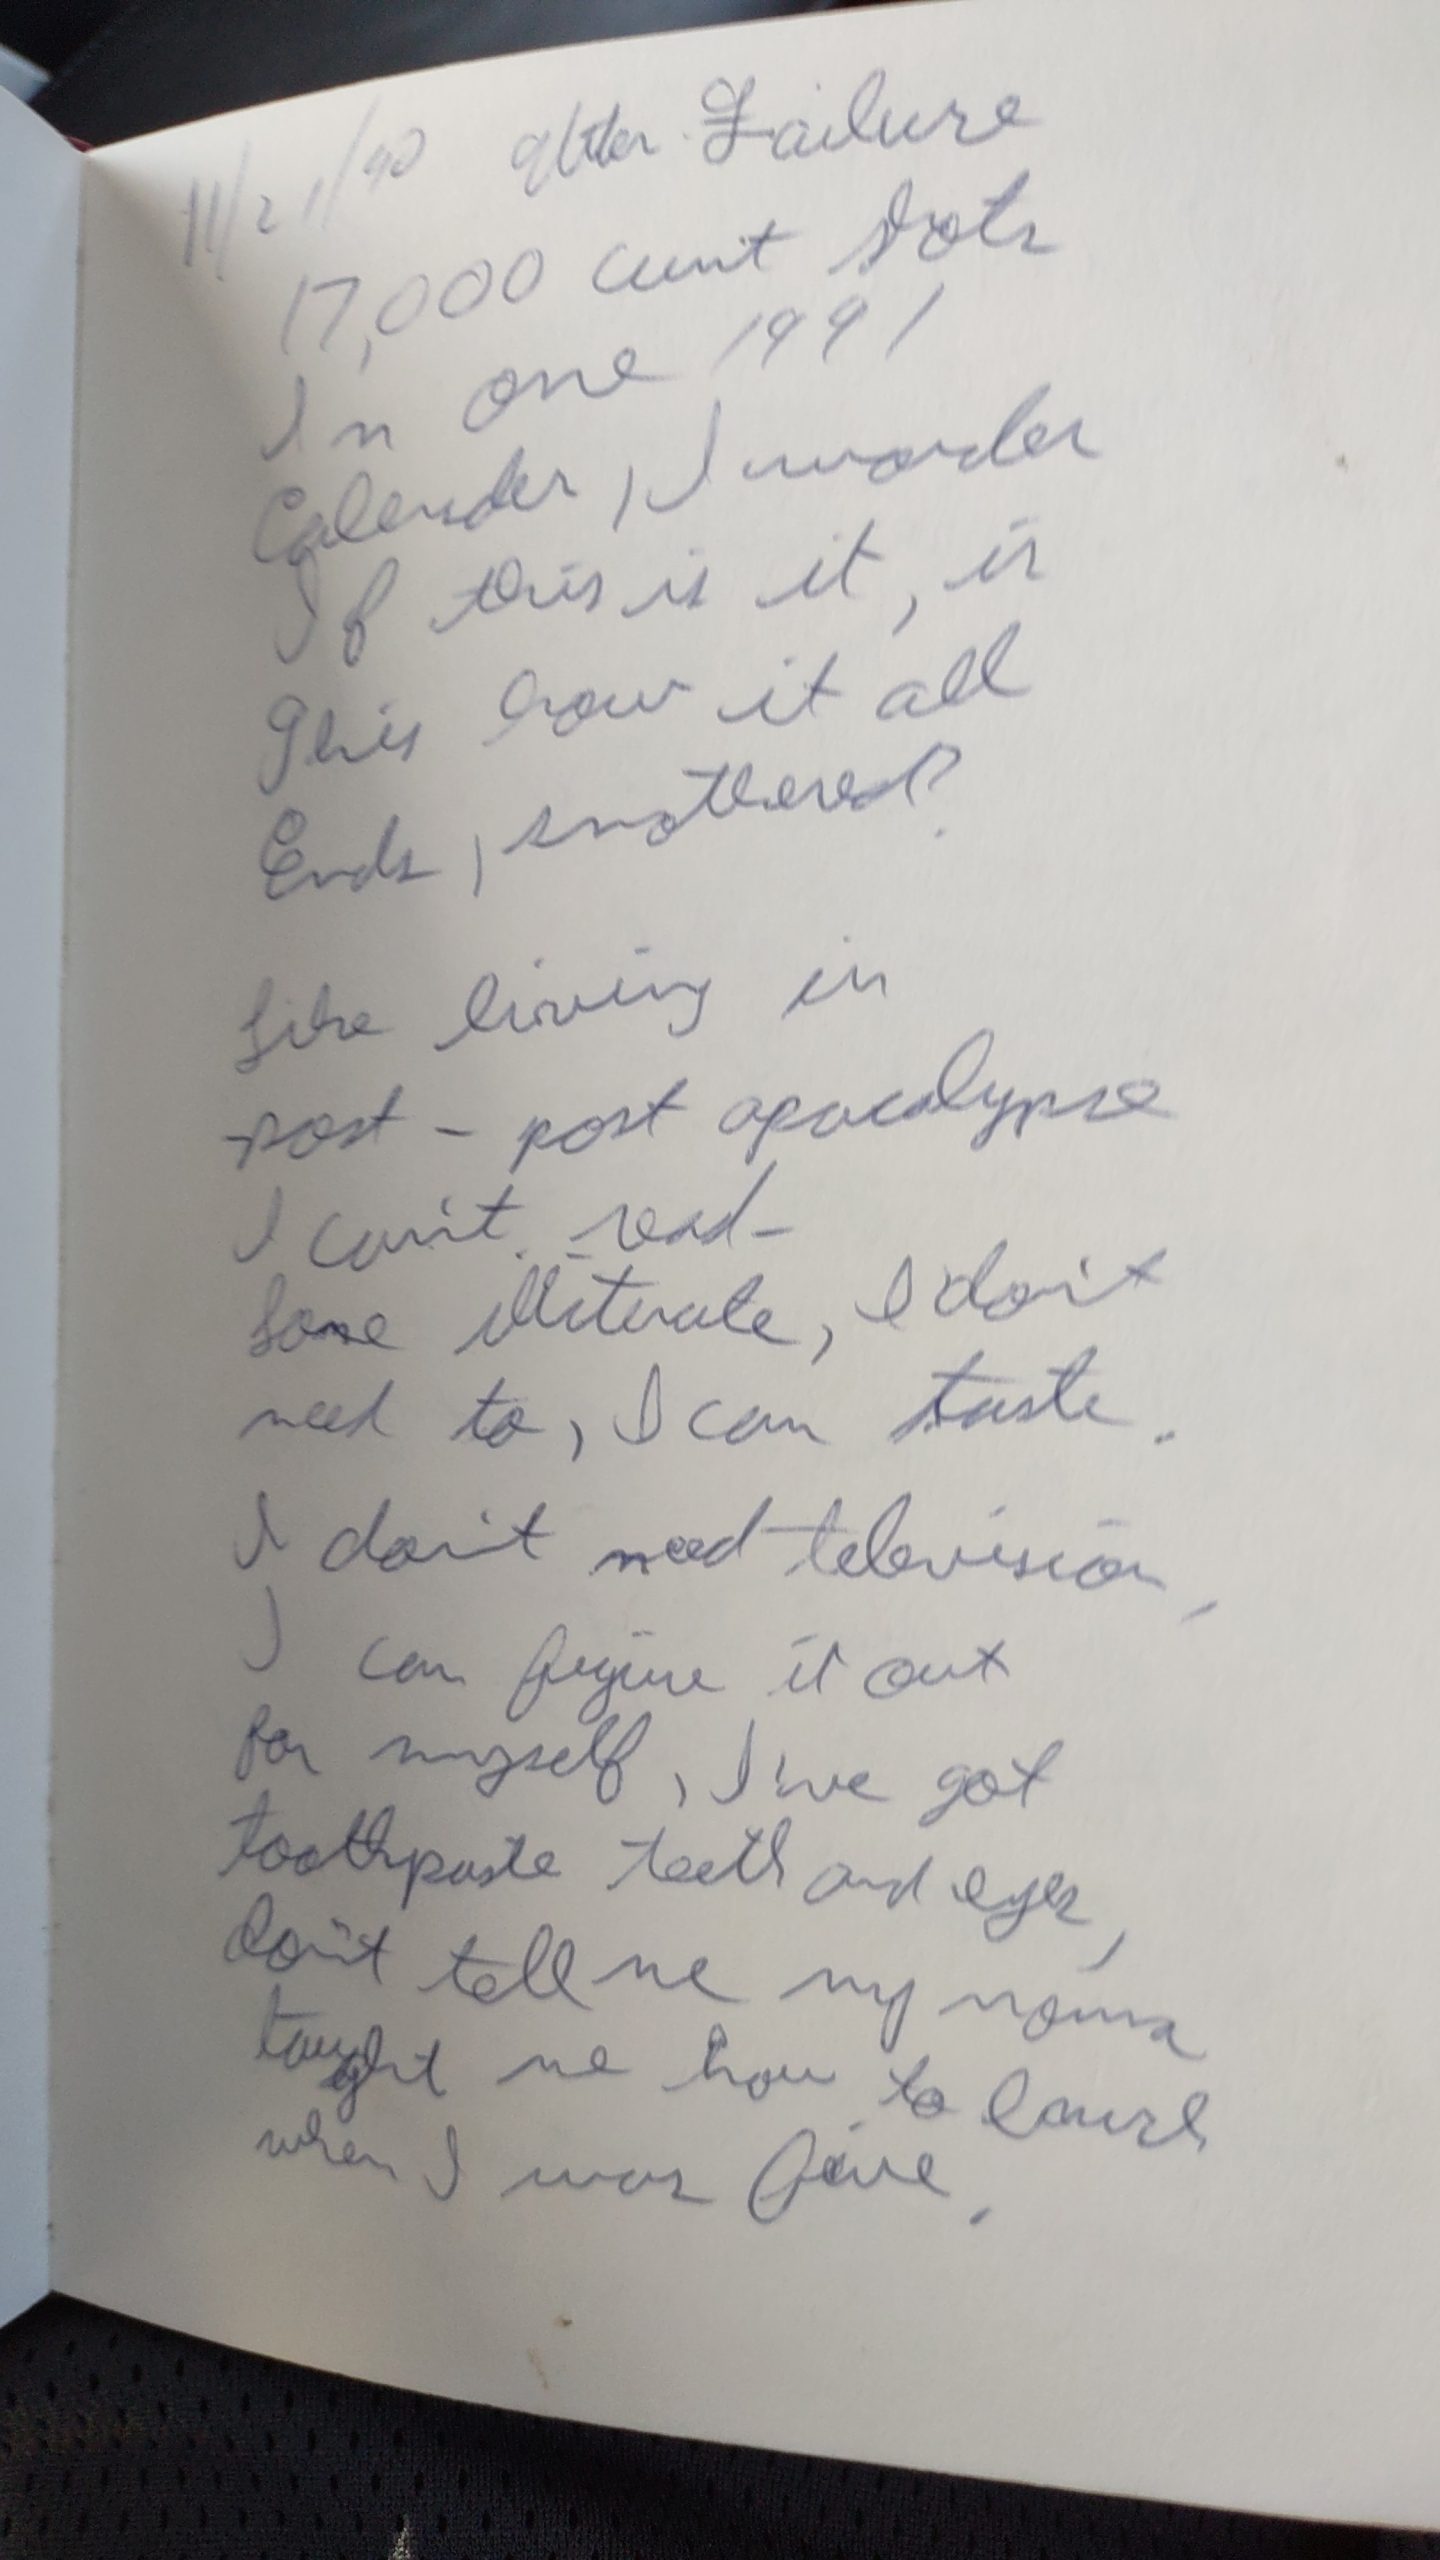 11/21/90 After Failure
17,000 cunt
In one 1991
Calender, I wonder
If this is it, is
This how it all
Ends, smothered?
Like living in
post - post apocalypse
I can't read -
Some illiterate, I don't
need to, I can taste.
I don't need television,
I can figure it out
for myself, I've got
toothpaste teeth and eyes,
don't tell me my
taught me how to
when I was five.